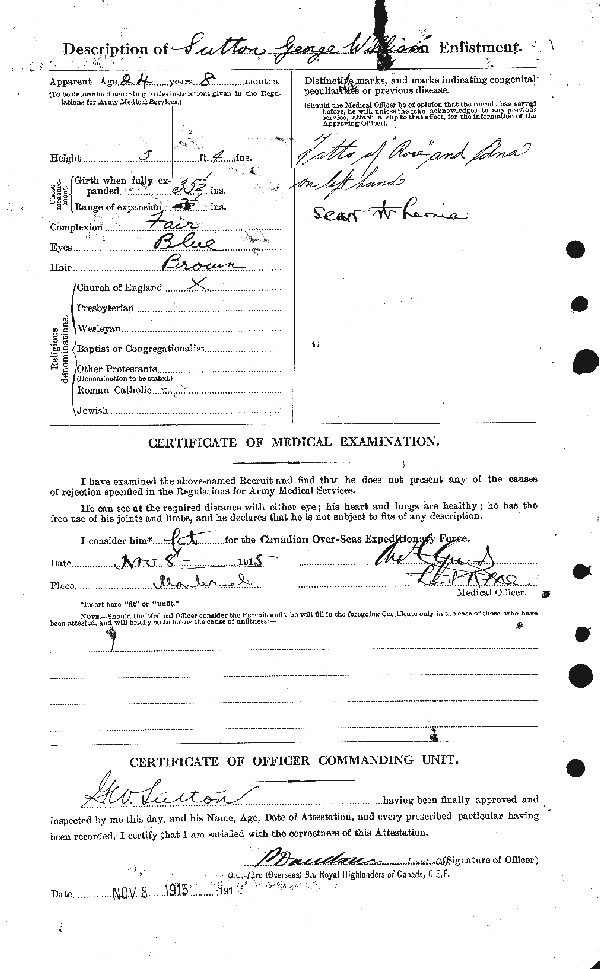 Description of Sutton George William on Enlistment.
Apparent Age 24 years 8 months
(To be determined according to the instructions given in the Regulations for Army Medical Services.)
Height 5 ft. 4 ins.
Chest measurement.
Girth when fully expanded 35½ ins.
Range of expansion ins.
Complexion Fair
Eyes Blue
Hair Brown
Religious denominations.
Church of England X
Presbyterian
Wesleyan
Baptist or Congregationalist
Other Protestants
(Denomination to be stated.)
Roman Catholic
Jewish
Distinctive marks, and marks indicating congenital
peculiarities or previous disease.
(Should the Medical Officer be of opinion that the recruit has served
before, he will, unless the man acknowledges to any previous
service, attach a slip to that effect, for the information of the
Approving Officer).
Tatto of "Rose" and Edna
on left hand
Scar
CERTIFICATE OF MEDICAL EXAMINATION.
I have examined the above-named Recruit and find that he does not present any of the causes
of rejection specified in the Regulations for Army Medical Services.
He can see at the required distance with either eye; his heart and lungs are healthy; he has the
free use of his joints and limbs, and he declares that he is not subject to fits of any description.
I consider him* fit for the Canadian Over-Seas Expeditionary Force.
Date Nov 8 1915
Place Montreal
Medical Officer.
*Insert here "fit" or "unfit."
NOTE—Should the Medical Officer consider the Recruit unfit, he will fill in the foregoing Certificate only in the case of those who have
been attested, and will briefly state below the cause of unfitness:—
CERTIFICATE OF OFFICER COMMANDING UNIT.
G.W. Sutton having been finally approved and
inspected by me this day, and his Name, Age, Date of Attestation, and every prescribed particular having
been recorded, I certify that I am satisfied with the correctness of this Attestation.
(Signature of Officer)
(Overseas) Bn. Royal Highlanders of Canada, C.E.F.
Date NOV 8 1915 191